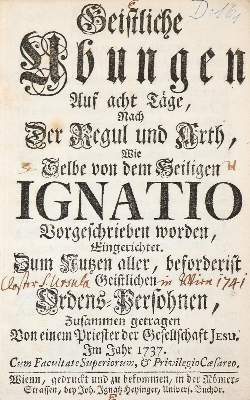 Geistliche
Übungen
Auf acht Täge,
Nach
Der Regul und Arth,
Wie
Selbe von dem Heiligen
IGNATIO
Vorgeschrieben worden,
Eingerichtet.
Zum Nutzen aller, beforderist
Closter S. Ursula Geistlichen in Wien 1741
Ordens-Persohnen,
Zusammen getragen
Von einem Priester der Gesellschaft JESU.
Im Jahr 1737.
Cum Facultate Superiorum, & Privilegio Cæsareo.
Wienn, gedruckt und zu bekommen, in der Römer-
Strassen, bey Joh. Ignatz Heyinger, Univers. Buchdr.